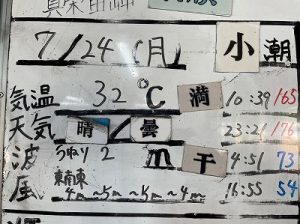 7/24(月) 小潮
気温 32℃ 満 10:39 165
天気 晴/曇 23:21 176
波 うねり2m 干 4:51 73
風 東南東 4m~5m~5m~4m 16:55 54